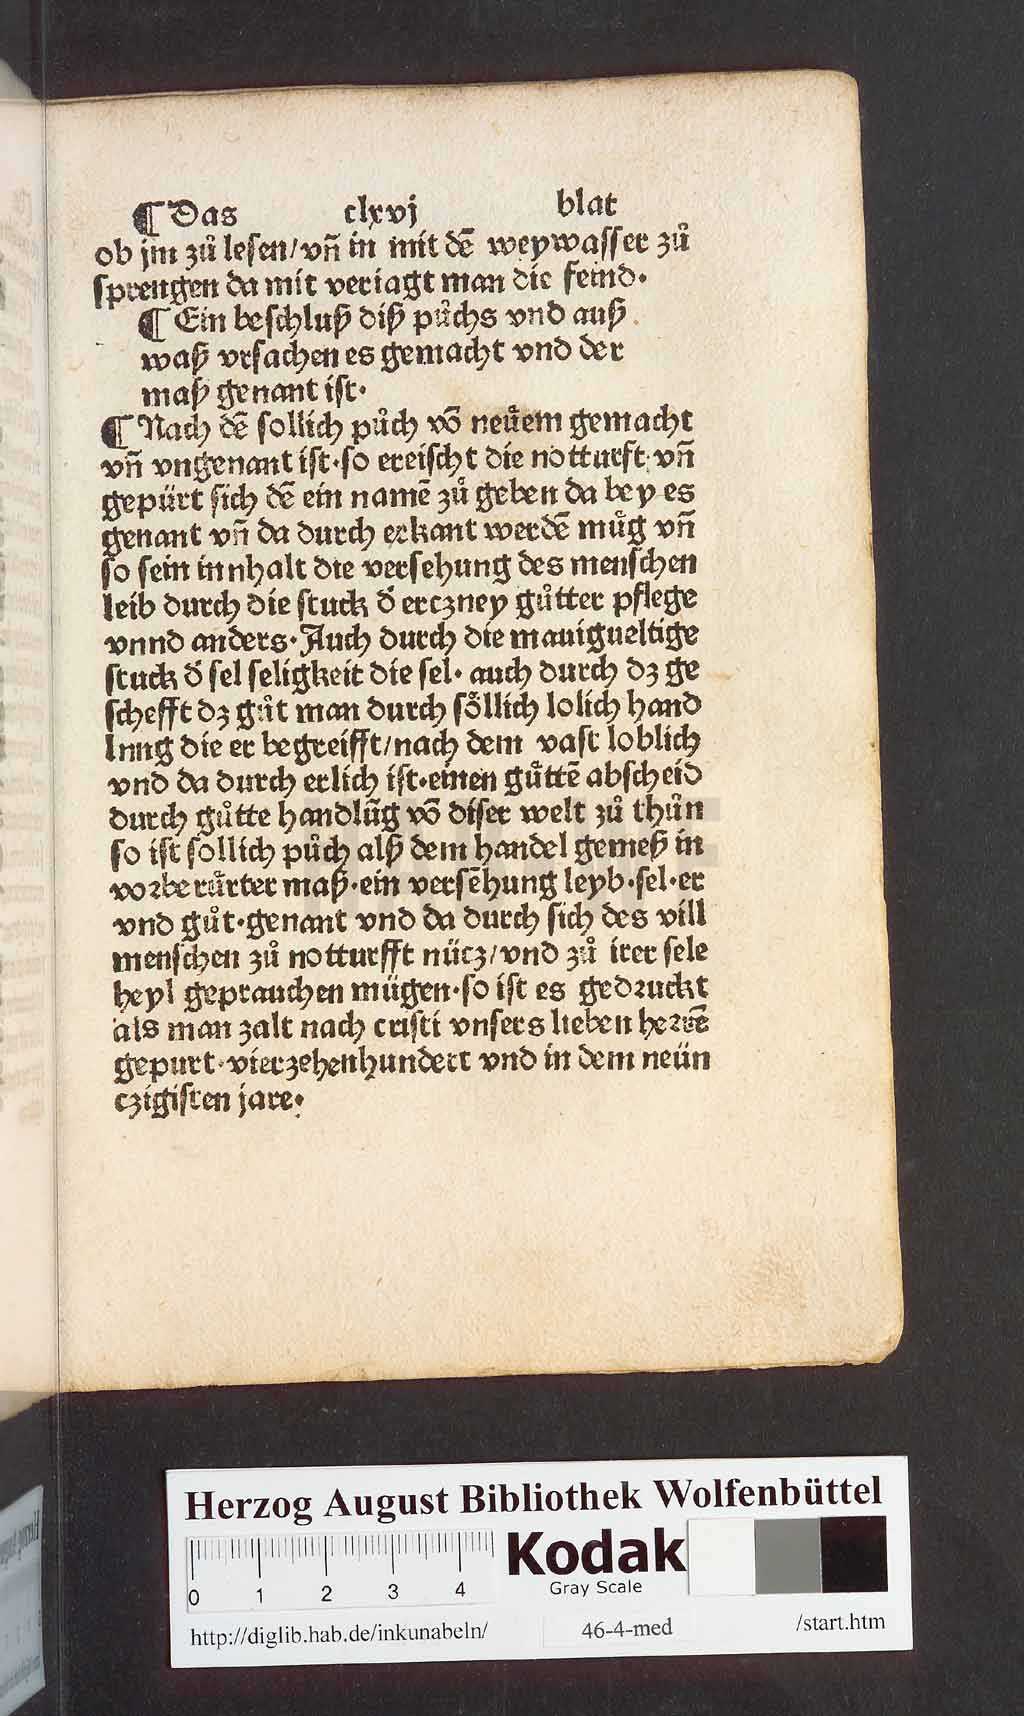 ¶ Das clxvj blat
ob jm zů lesen/vñ in mit dē weywasser zů
sprengen da mit veriagt man die feind·
¶ Ein beschluß diß půchs vnd auß
waß vrsachen es gemacht vnd der
maß genant ist·
¶ Nach dē sollich půch vō neüem gemacht
vñ vngenant ist·so ereischt die notturft vñ
gepürt sich dē ein namē zů geben da bey es
genant vñ da durch erkant werdē můg vñ
so sein innhalt die versehung des menschen
leib durch die stuck d̛ erczney gůtter pflege
vnnd anders·Auch durch die mauigueltige
stuck d̛ sel seligkeit die sel· auch durch dz ge
schefft dz gůt man durch söllich lolich hand
lnng die er begreifft/nach dem vast loblich
vnd da durch erlich ist·einen gůttē abscheid
durch gůtte handlūg vō diser welt zů thůn
so ist sollich půch alß dem handel gemeß in
vorberürter maß·ein versēhung leyb·sel·er
vnd gůt·genant vnd da durch sich des vill
menschen zů notturfft nücz/vnd zů irer sele
heyl geprauchen mügen·so ist es gedruckt
als man zalt nach cristi vnsers lieben herrē
gepurt·vierzehenhundert vnd in dem neün
czigisten jare·
Herzog August Bibliothek Wolfenbüttel
0 1 2 3 4
Kodak
Gray Scale
http://diglib.hab.de/inkunabeln/ 46-4-med /start.htm